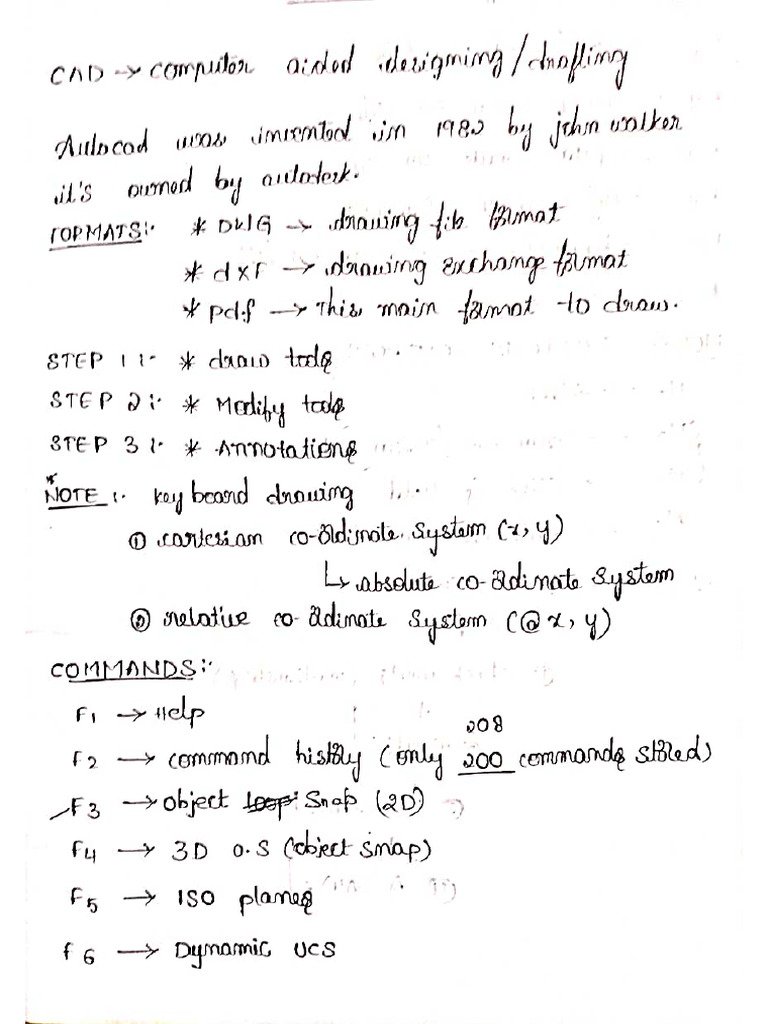 CAD → computer aided designing/drafting
Autocad was invented in 1982 by john walker
it's owned by autodesk.
FORMATS:- * DWG → drawing file format
* dxf → drawing exchange format
* pdf → This main format to draw.
STEP 1 :- * draw tools
STEP 2 :- * Modify tools
STEP 3 :- * Annotations
* NOTE :- key board drawing
① cartesian co-ordinate system (x, y)
↳ absolute co-ordinate system
② relative co-ordinate system (@ x, y)
COMMANDS:-
F1 → Help
208
F2 → command history (only 200 commands stored)
F3 → object loop snap (2D)
F4 → 3D O.S (object snap)
F5 → ISO planes
F6 → Dynamic UCS